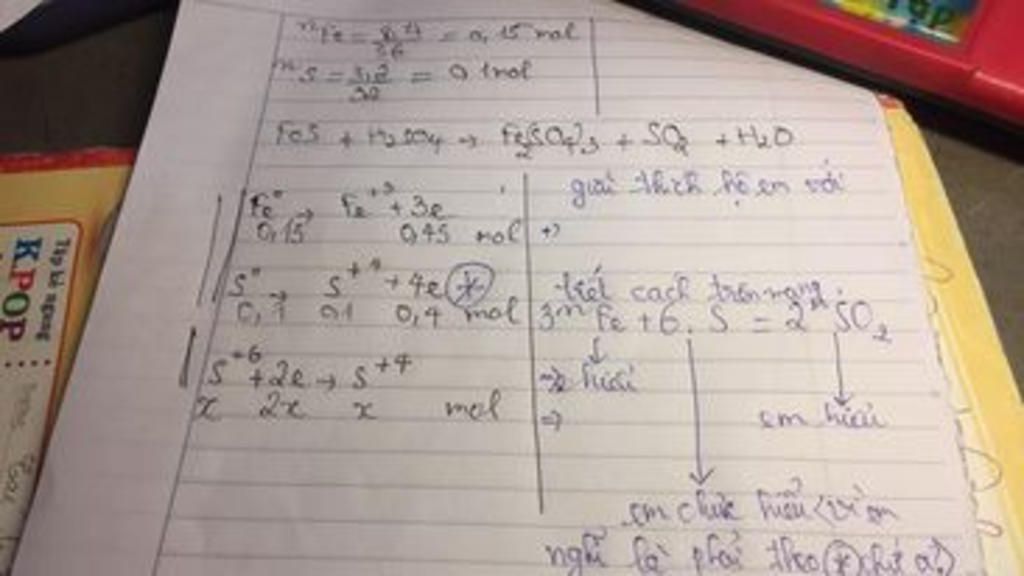 nFe = 8,4/56 = 0,15 mol
nS = 3,2/32 = 0,1 mol
FeS + H2SO4 → Fe2(SO4)3 + SO2 + H2O
Fe⁰ → Fe⁺³ + 3e
0,15 0,45 mol
S⁰ → S⁺⁴ + 4e (*)
0,1 0,1 0,4 mol
S⁺⁶ + 2e → S⁺⁴
x 2x x mol
giải thích hộ em với
tiết cách trên mạng
3nFe + 6.S = 2nSO2
→ hiểu
⇒
em hiểu
em chưa hiểu (vì em
nghĩ là phải theo (*) chứ ạ?)
Tập kẻ ngang
KPOP